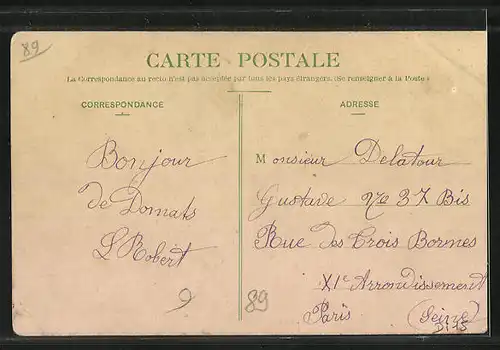 89
CARTE POSTALE
La Correspondance au recto n'est pas acceptée par tous les pays étrangers. (Se renseigner à la Poste)
CORRESPONDANCE
ADRESSE
Bonjour
de Domats
L Robert
9
Monsieur Delatour
Gustave No 37 Bis
Rue des Trois Bornes
XIe Arrondissement
Paris (Seine)
89
D. 15